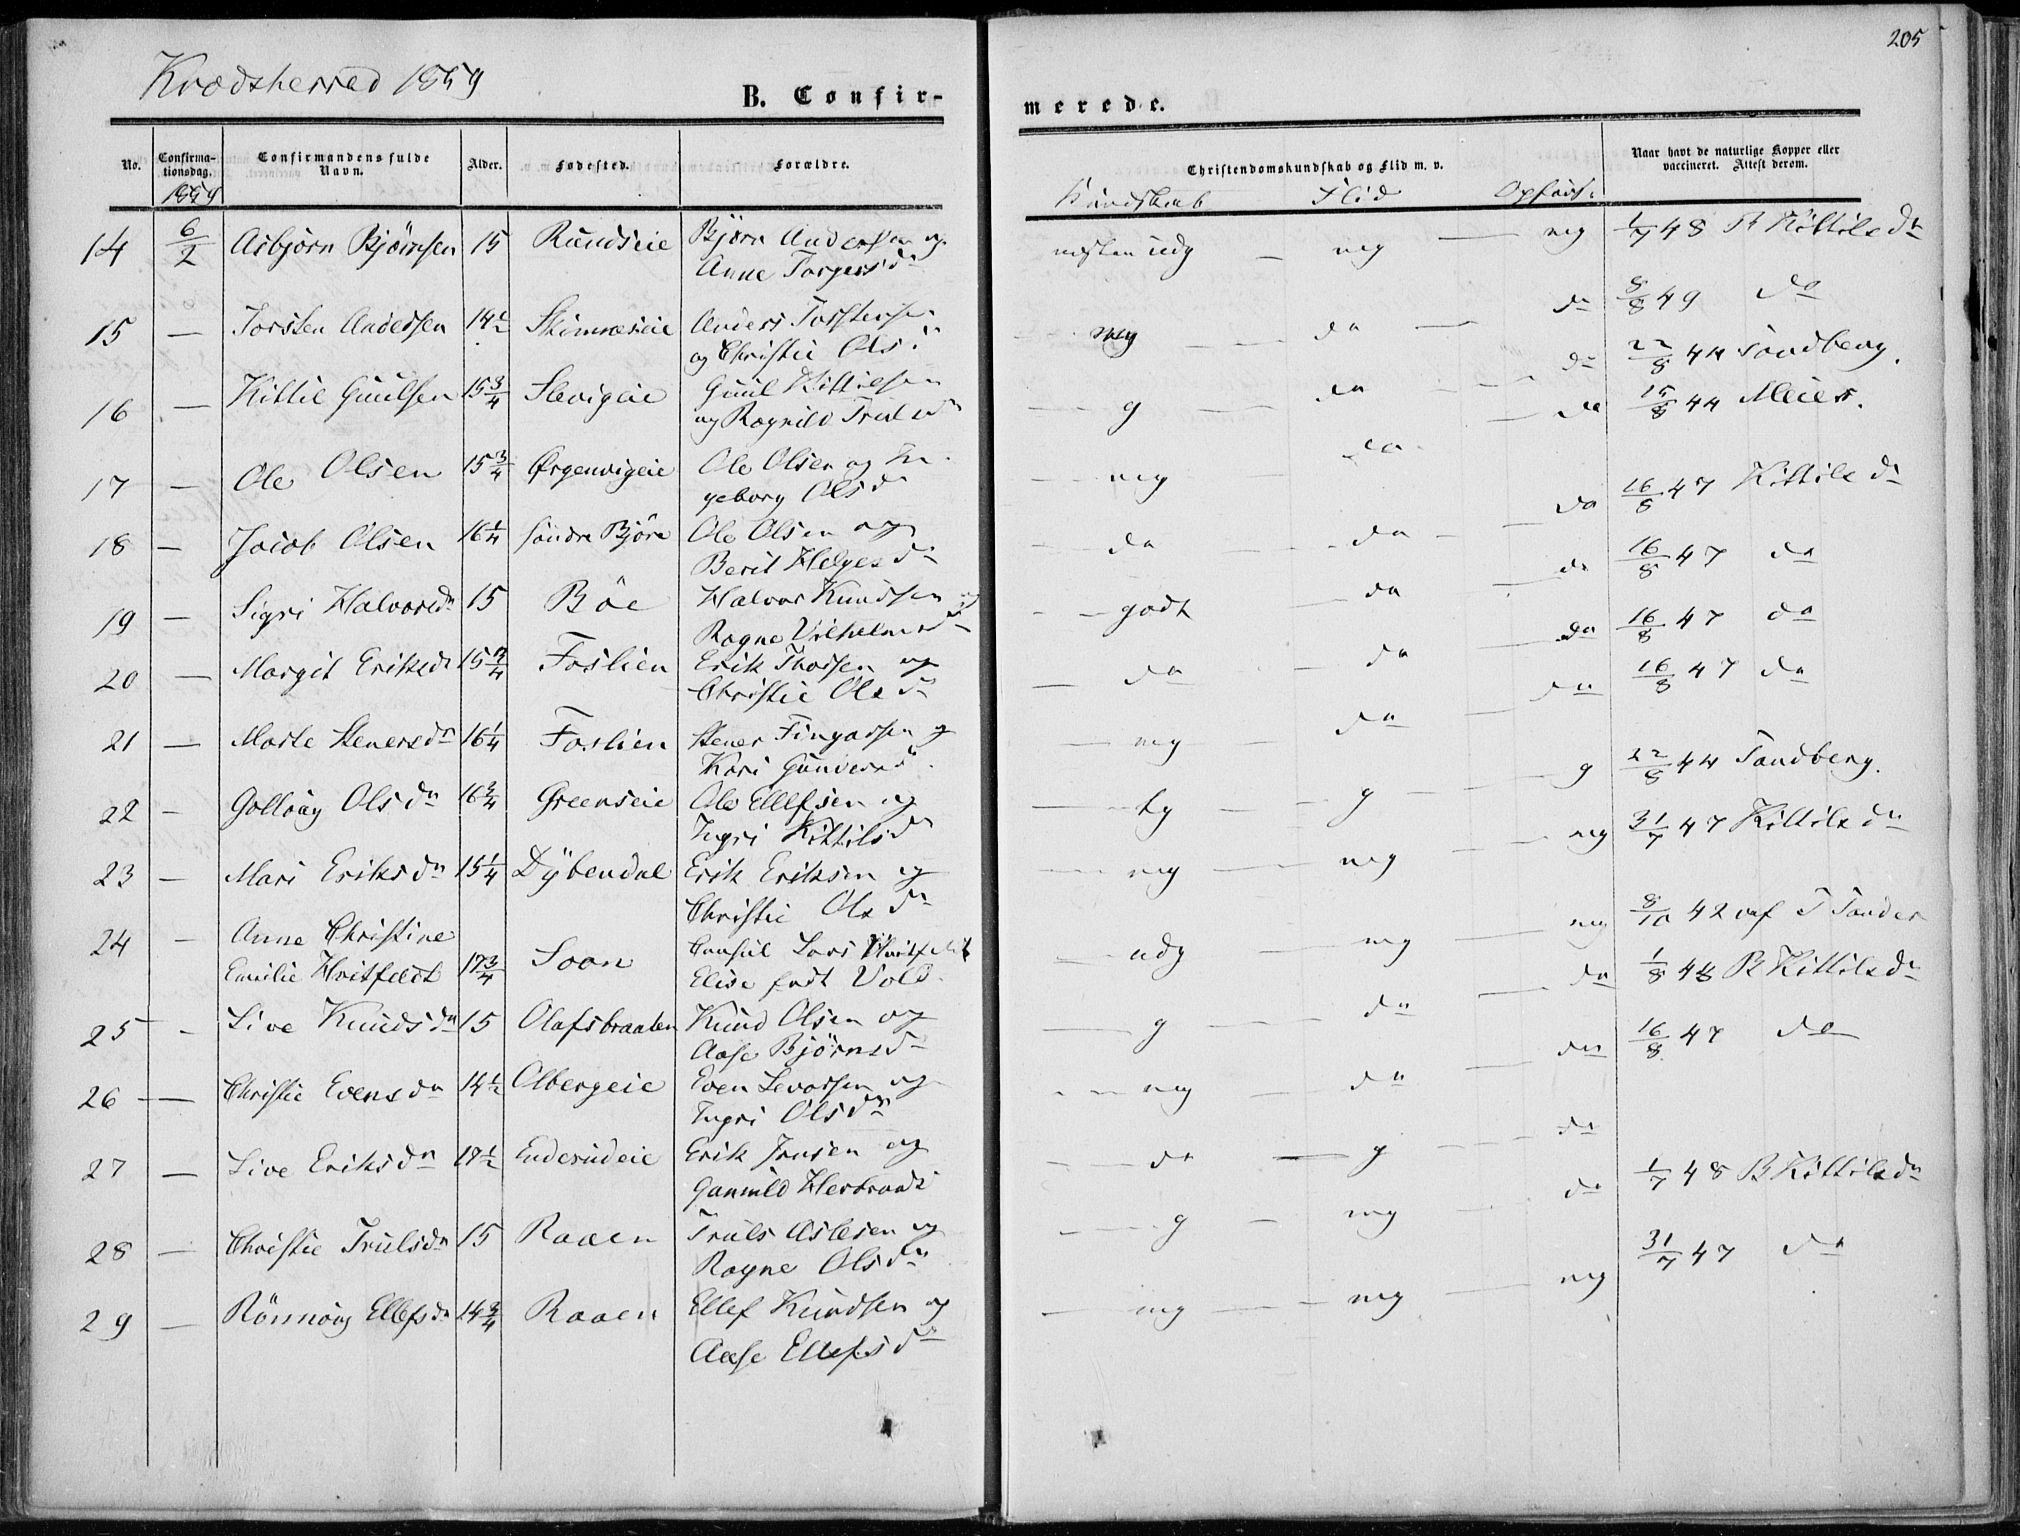 Krødsherred 1859
205
B. Confir-
merede.
No.
Confirma-
tionsdag.
Confirmandens fulde
Navn.
Alder.
Fødested.
Forældre.
Christendomskundskab og Flid m. v.
Naar havt de naturlige Kopper eller
vaccineret. Attest derom.
1859
Kundskab Flid Opførs.
14 6/2 Asbjørn Bjørnsen 15 Rundseie Bjørn Andersen og
Anne Torgersdr
næsten udg — mg — mg 1/7 48 Kittilsdr
15 — Torsten Andersen 14½ Skinnæseie Anders Torstensen
og Christie Olsd
mg — do — do 8/8 49 do
16 — Kittil Guulsen 15¾ Slevigeie Guul Kittilsen
og Ragnild Trulsdr
— g — do — do 22/8 44 Sandberg.
17 — Ole Olsen 15¾ Ørgenvigeie Ole Olsen og In-
geborg Olsdr
— mg — do — do 15/8 44 Meier.
18 — Jacob Olsen 16¼ søndre Bjøre Ole Olsen og
Berit Helgesdr
— do — do — do 16/8 47 Kittilsdr
19 — Sigri Halvorsdr 15 Böe Halvor Knudsen og
Ragne Vilhelmsdr
— godt — do — do 16/8 47 do
20 — Margit Eriksdr 15¾ Foslien Erik Thorsen og
Christie Olsdr
— do — do — do 16/8 47 do
21 — Marte Stenersdr 16¼ Foslien Stener Fingarsen og
Kari Gundersd
— mg — do — do 16/8 47 do
22 — Golloug Olsdr 16¾ Greenseie Ole Ellefsen og
Ingri Kittilsdr
— tg — g — g 22/8 44 Sandberg.
23 — Mari Eriksdr 15¼ Dybendal Erik Eriksen og
Christie Olsdr
— mg — mg — mg 31/7 47 Kittilsdr
24 — Anne Christine
Emilie Hvitfeldt 17¾ Soon Consul Lars Hvitfeldt
Elise født Vold
— udg — mg — mg 8/10 42 af T Sander
25 — Live Knudsdr 15 Olafsbraaten Knud Olsen og
Aase Bjørnsdr
— g — do — do 1/8 48 B Kittilsdr
26 — Christie Evensdr 14½ Olbergeie Even Levorsen og
Ingri Olsdr
— mg — do — do 16/8 47 do
27 — Live Eriksdr 17½ Enderudeie Erik Jensen og
Gunnild Herbrands
— do — g — do
28 — Christie Trulsdr 15 Raaen Truls Aslesen og
Ragne Olsdr
— g — mg — do 1/7 48 B Kittilsdr
29 — Rönnoug Ellefsdr 14¾ Raaen Ellef Knudsen og
Aase Ellefsdr
— mg — mg — mg 31/7 47 do